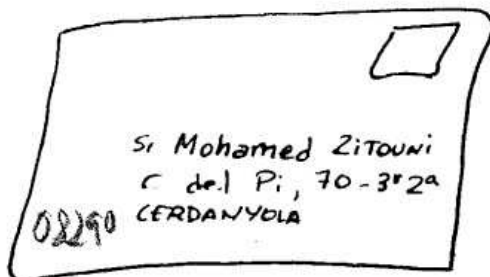 Sr Mohamed ZITOUNI
C del Pi, 70-3r 2a
08290 CERDANYOLA